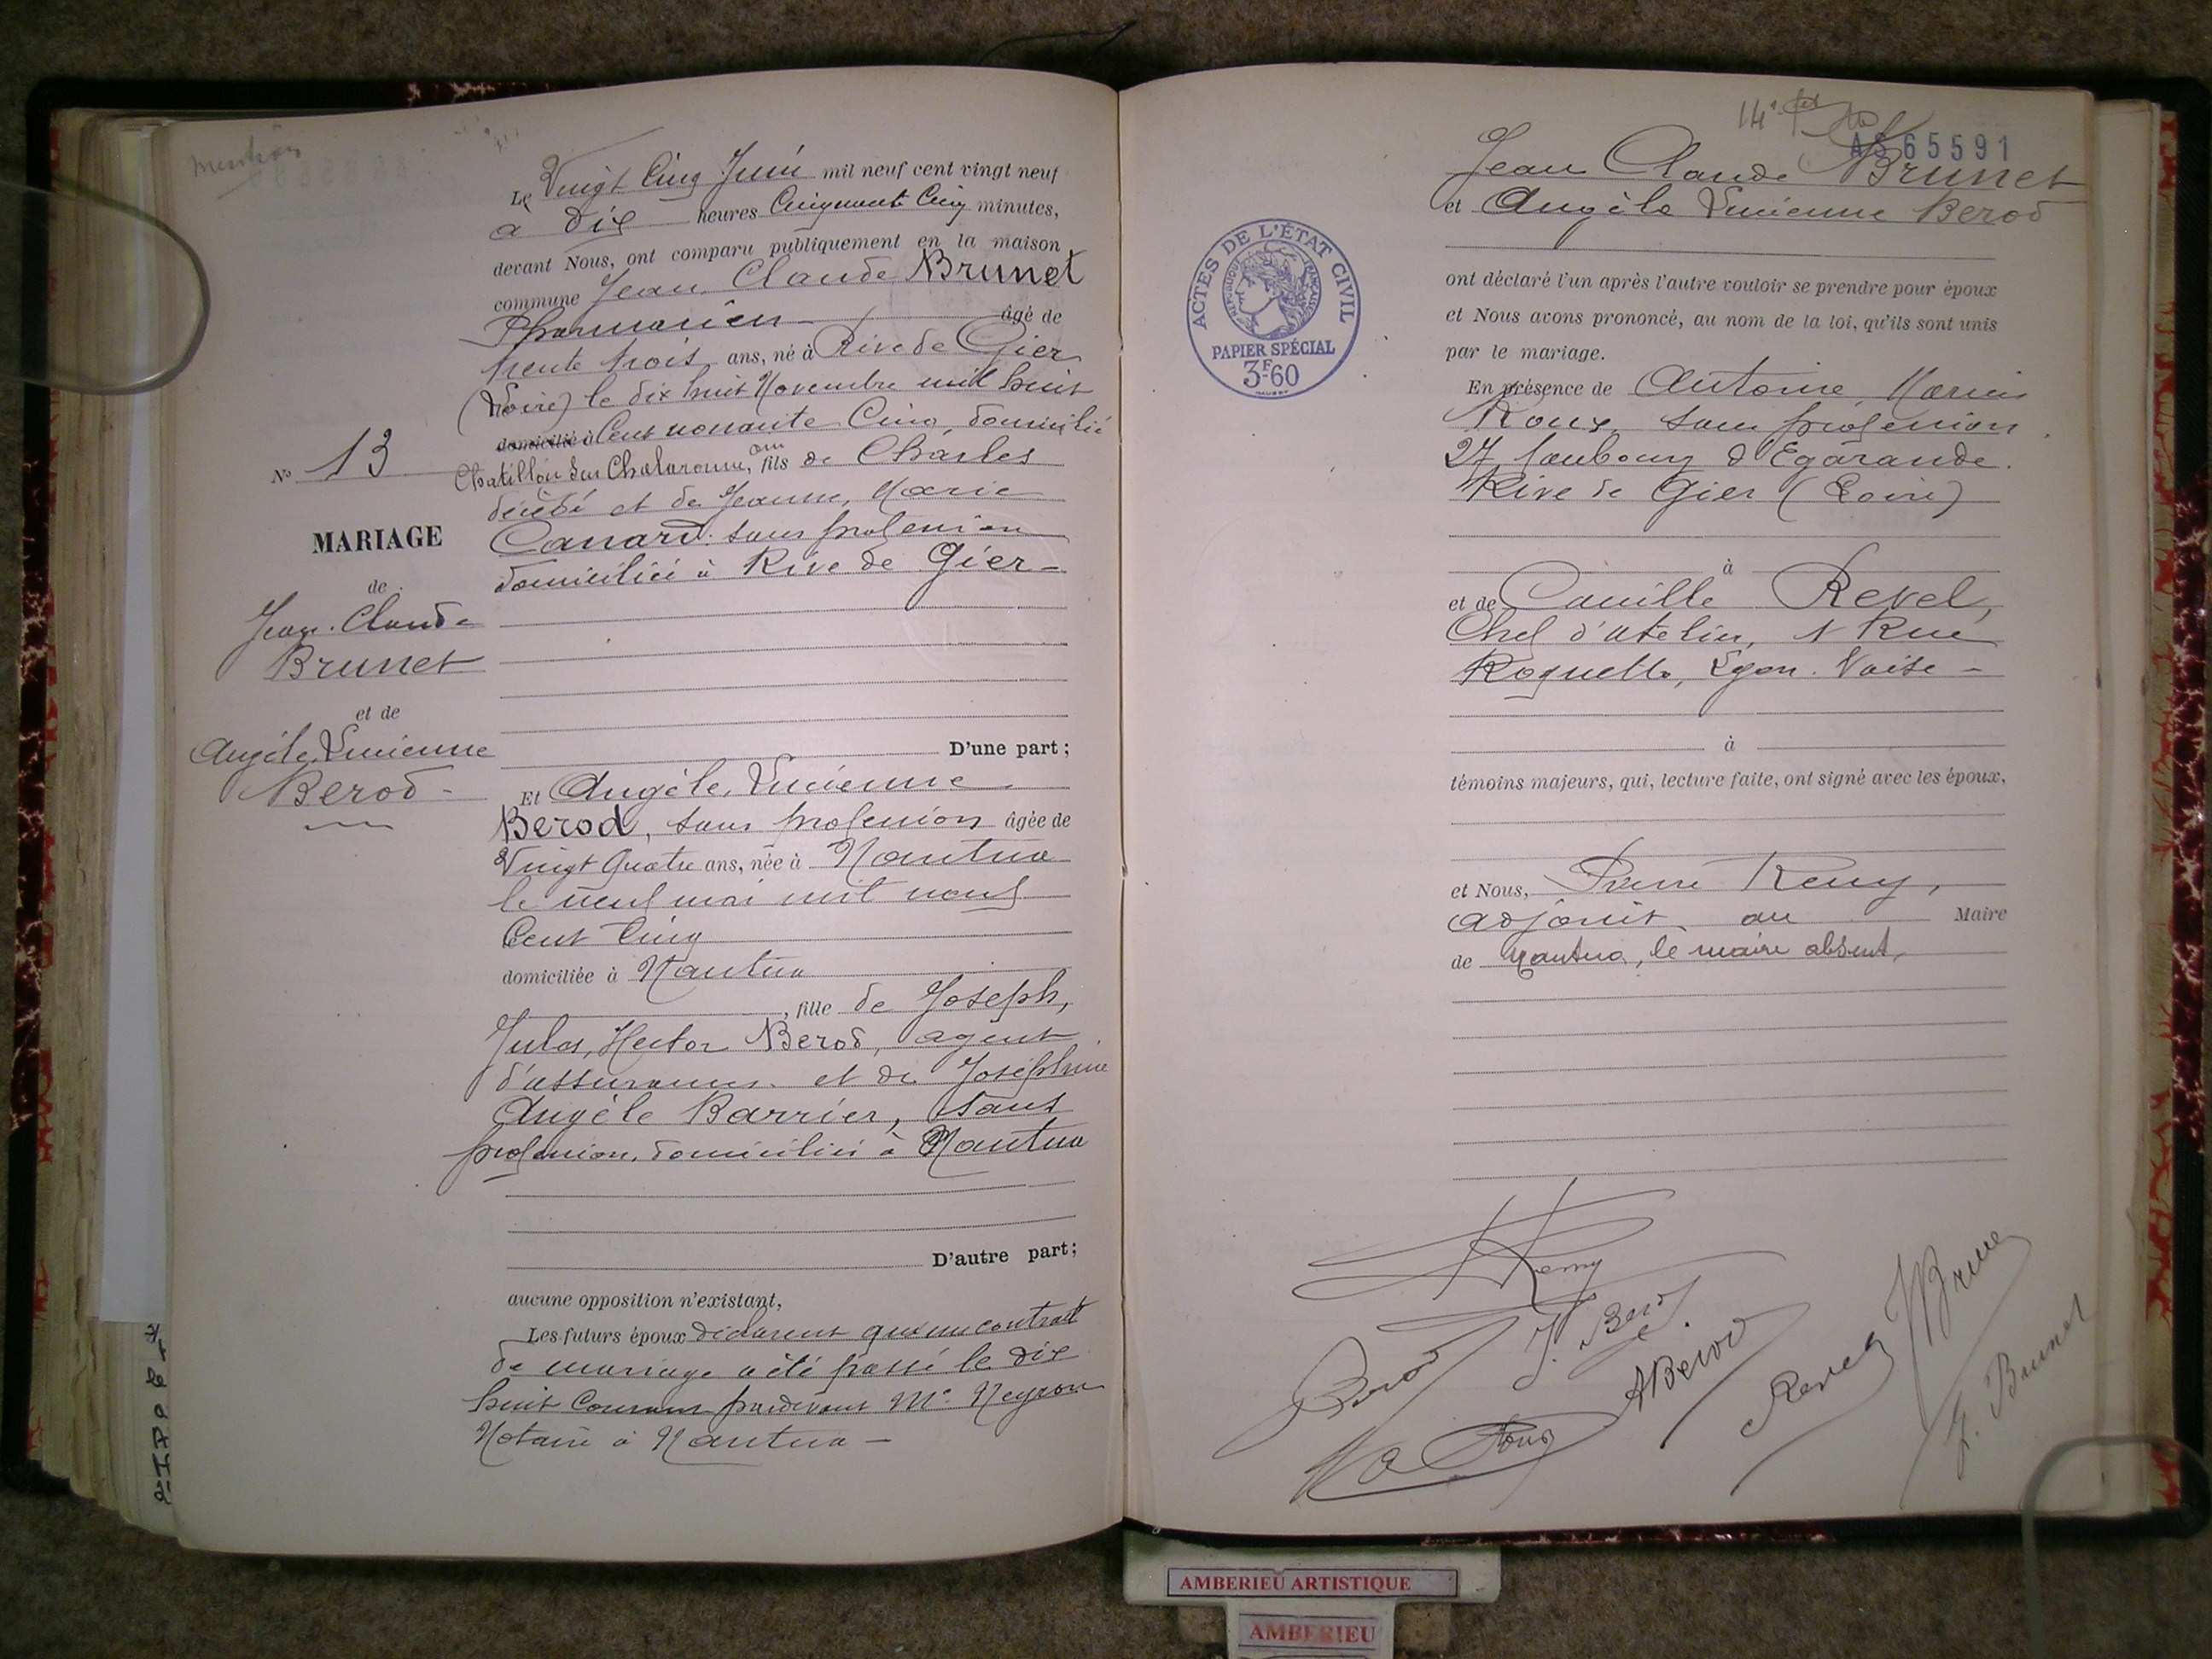 mention
Le Vingt Cinq Juin mil neuf cent vingt neuf
a dix heures Cinquante Cinq minutes,
devant Nous, ont comparu publiquement en la maison
commune Jean Claude Brunet
Pharmacien âgé de
trente trois ans, né à Rive de Gier
(Loire) le dix huit Novembre mil huit
domicilié à Cent nonante Cinq, domicilié
Chatillon sur Chalaronne, ain fils de Charles
décédé et de Jeanne, Marie
Canard. sans profession
domiciliée à Rive de Gier -
No 13
MARIAGE
de
Jean. Claude
Brunet
et de
Angèle, Lucienne
Berod -
D'une part ;
Et Angèle, Lucienne
Berod, sans profession âgée de
Vingt Quatre ans, née à Nantua
le neuf mai mil neuf
Cent Cinq
domiciliée à Nantua
, fille de Joseph,
Jules, Hector Berod, agent
d'assurances. et de Joséphine
Angèle Barrier, sans
profession, domiciliés à Nantua
D'autre part ;
aucune opposition n'existant,
Les futurs époux déclarent qu'un contrat
de mariage a été passé le dix
huit Courant pardevant Me Neyron
Notaire à Nantua -
14e
AS 65591
Jean Claude Brunet
et Angèle Lucienne Berod
ACTES DE L'ÉTAT CIVIL
RÉPUBLIQUE FRANÇAISE
PAPIER SPÉCIAL
3F60
ont déclaré l'un après l'autre vouloir se prendre pour époux
et Nous avons prononcé, au nom de la loi, qu'ils sont unis
par le mariage.
En présence de Antoine, Marius
Roux, sans profession,
27 faubourg d'Egarande.
Rive de Gier (Loire)
à
et de Camille Revel,
Chef d'atelier, 1 Rue
Roquette, Lyon. Vaise -
à
témoins majeurs, qui, lecture faite, ont signé avec les époux,
et Nous, Pierre Remy,
adjoint au Maire
de Nantua, le maire absent,
Remy
J. Berod
Berod
ABerod
Revel
JBrunet
J. Brunet
AMBERIEU ARTISTIQUE
AMBERIEU